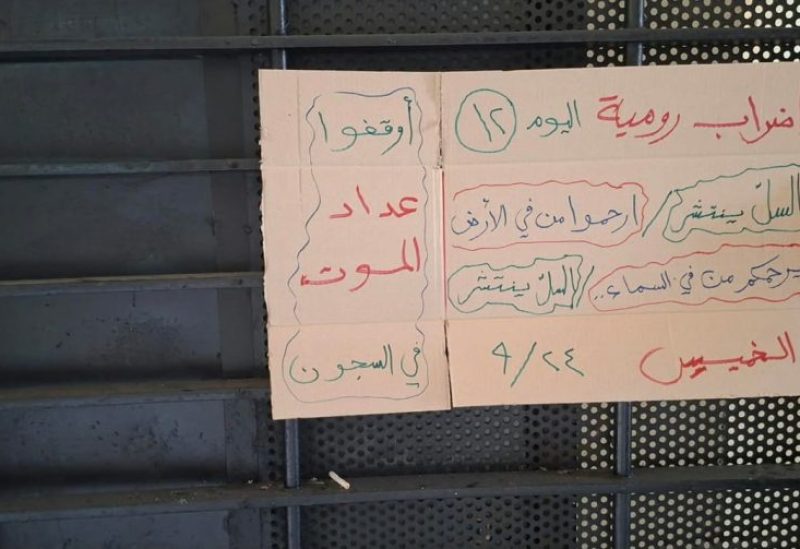 ضراب رومية اليوم ١٢
السلّ ينتشر / ارحموا من في الأرض
يرحمكم من في السماء.. / السلّ ينتشر
الخميس ٩/٢٤
أوقفوا
عداد
الموت
في السجون